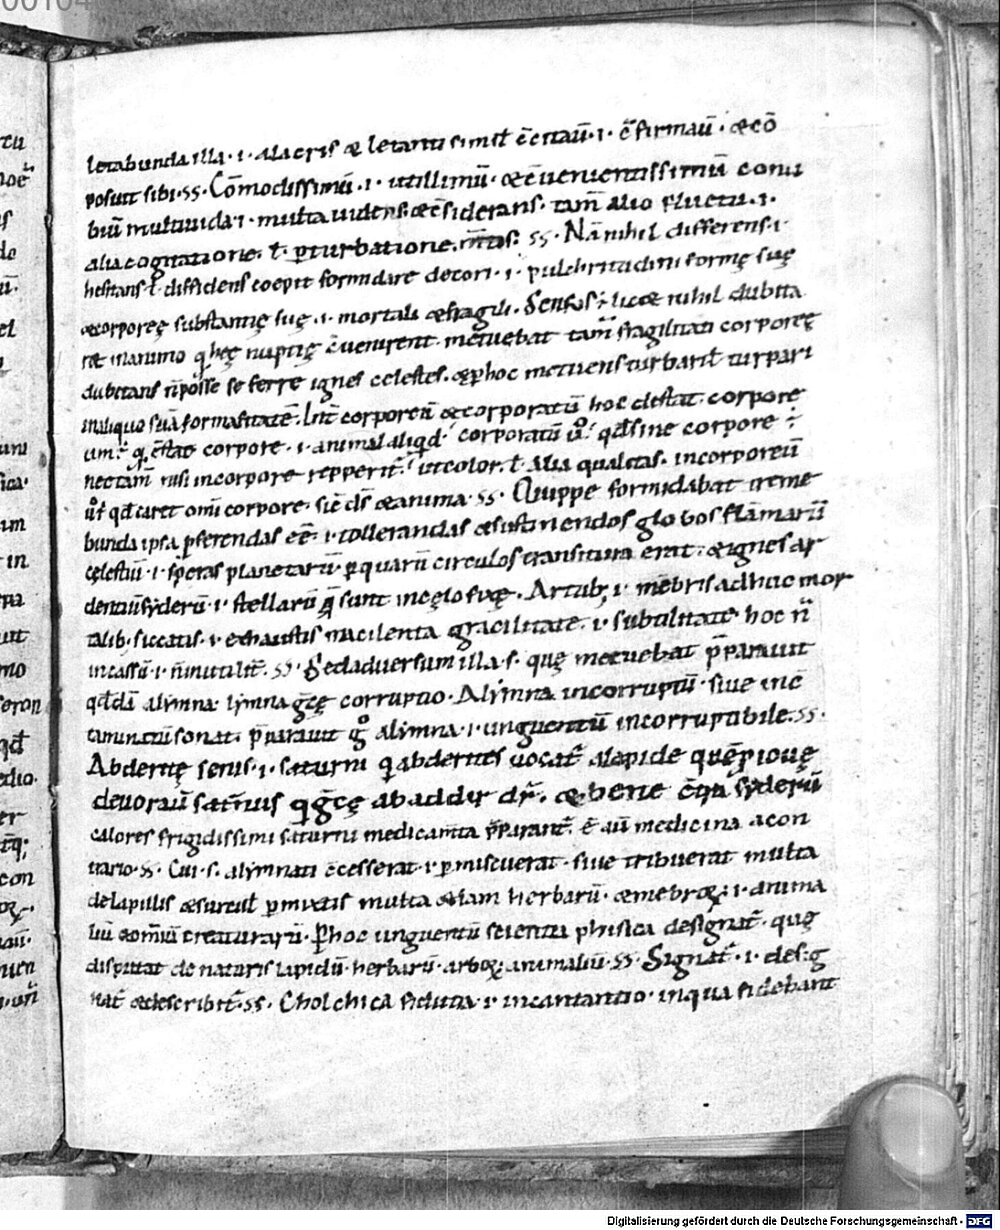 letabunda illa · i · alacris & letanti simił c̄citaū · i · c̄firmaū · & cō
posuit sibi · ss · Cōmodissimū · i · utillimū · & c̄uenientissimū conu
biū multiuida · i · multa uidens & c̄siderans · tam̄ alio fluctu · i ·
alia cogitatione · ł · p̱turbatione · ss · Nā nihil differens · i ·
hesitans · ł diffidens coepit formidare decori · i · pulchritudini formę suę
& corporeę substantię suę · i · mortali & fragili · Sensus ÷ licet nihil dubita
ret in animo q̇ hęc nuptię c̄uenirent · metuebat tam̄ fragilitati corporeę
dubitans n̄ posse se ferre ignes celestes · & p̱ hoc metuens turbari ł turpari
in aliquo suā formasitatē · Int̄ corporeū & corporatū hoc distat · corpore
um ÷ q̇ c̄stat corpore · i · animal aliqd · corporatū ū qd sine corpore ÷
nec tam̄ nisi in corpore repperit̄ · ut color · ł alia qualitas · incorporeū
ū qd caret omī corpore · sic̄ ds̄ & anima · ss · Quippe formidabat treme
bunda ipsa p̱ferendas eē · i · tollerandas & sustinendos globos flāmarū
cęlestiū · i · speras planetarū p̱ quarū circulos transitura erat · & ignes ar
dentiū syderū · i · stellarū sunt in cęlo fixę · Artub; · i · mēbris adhuc mor
talib · siccatis · i · exhaustis macilenta gracilitate · i · subtilitate hoc n̄
incassū · i · n̄ inutilit̄ · ss · Sed aduersum illa · s · quę metuebat p̄parauit
qddā alymna · lymna gc̄ę corruptio · Alymna incorruptū · siue inc̄
taminatū sonat · p̄parauit g̊ alymna · i · unguentū incorruptibile · ss ·
Abdertę senis · i · saturni q̇ abdertes uocat̄ a lapide quę p̄ iouę
deuoraū saturnus q gc̄ę abaddir dr̄ · & bene c̄tra syderū
calores frigidissimi saturni medicam̄ta p̄parant̄ · ē aū medicina a con
trario · ss · Cui · s · alymnati c̄cesserat · i · p̱miscuerat · siue tribuerat multa
de lapillis & surcul p̱mixtis multa etiam herbarū · & mēbroꝝ · i · anima
liū & omiū creaturarū · P̱ hoc unguentū scientia phisica designat̄ · quę
disputat de naturis lapidū · herbarū · arboꝝ · animaliū · ss · Signat̄ · i · desig
nat̄ & describit̄ · ss · Cholchica fiducia · i · incantantio · in qua fidebant
Digitalisierung gefördert durch die Deutsche Forschungsgemeinschaft - DFG